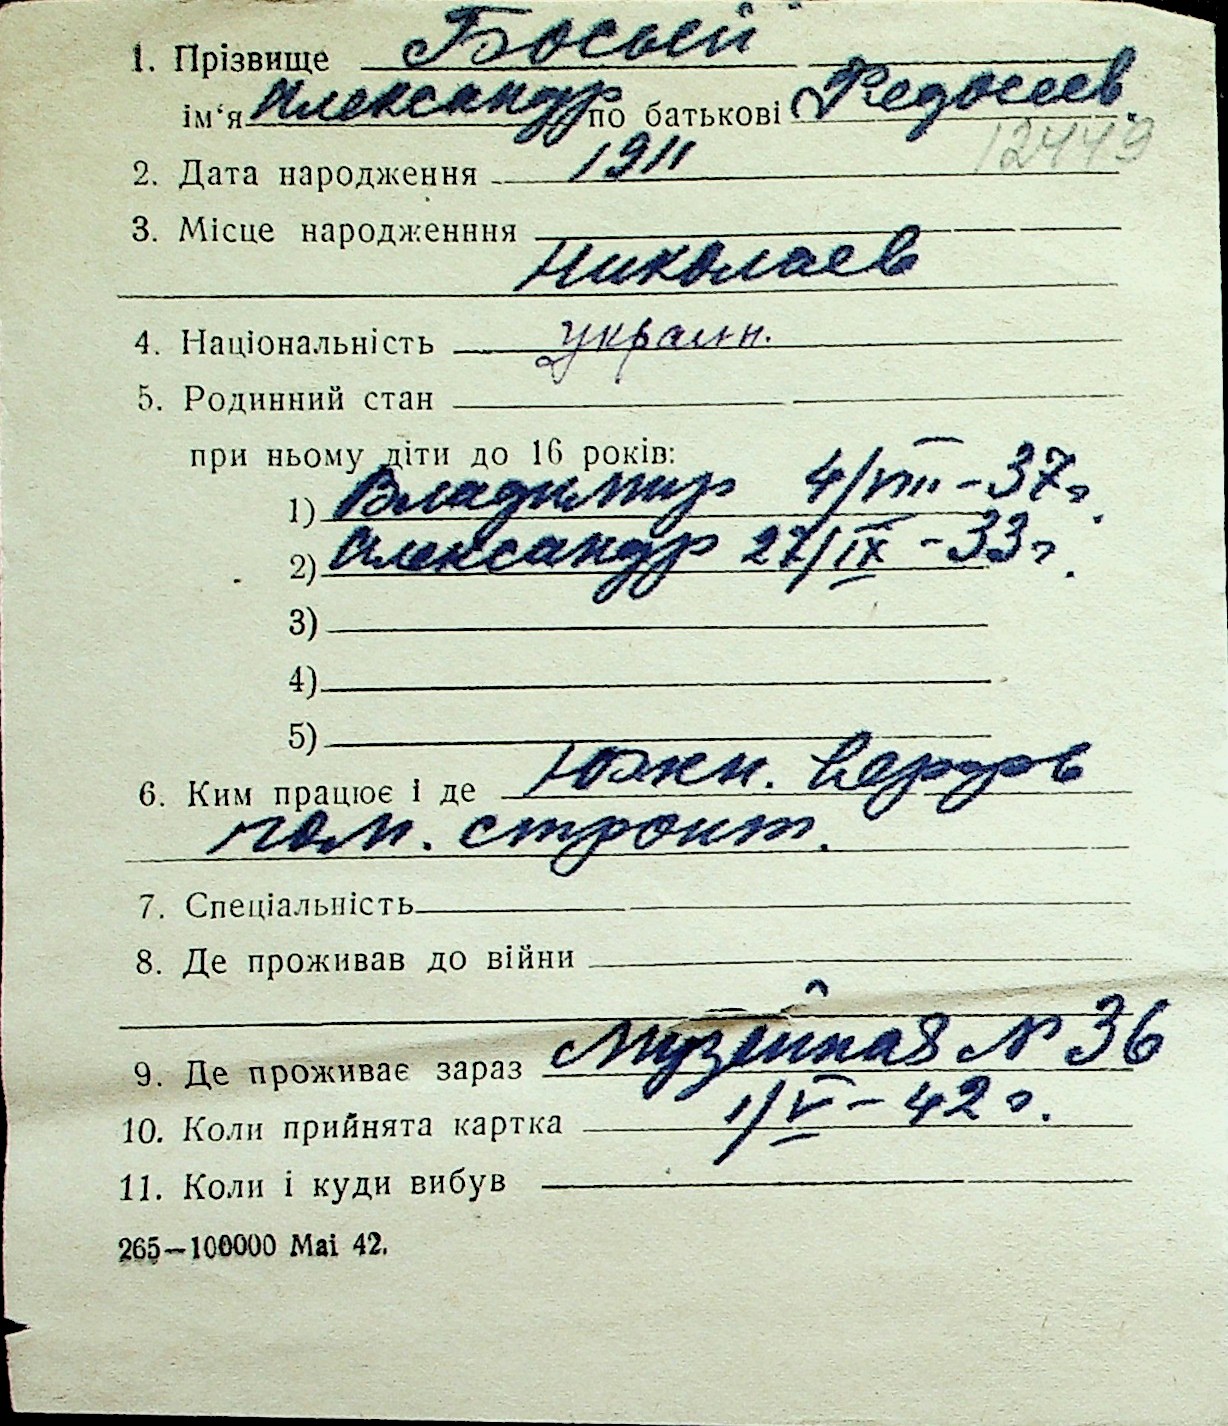 1. Прізвище Босый
ім‘я Александр по батькові Федосеев.
12449
2. Дата народження 1911
3. Місце народженння
Николаев
4. Національність украин.
5. Родинний стан
при ньому діти до 16 років:
1) Владимир 4/VIII-37г.
2) Александр 27/IX-33г.
3)
4)
5)
6. Ким працює і де Южн. верфь
пом. строит.
7. Спеціальність
8. Де проживав до війни
9. Де проживає зараз Музейная № 36
10. Коли прийнята картка 1/V-42г.
11. Коли і куди вибув
265—100000 Mai 42.